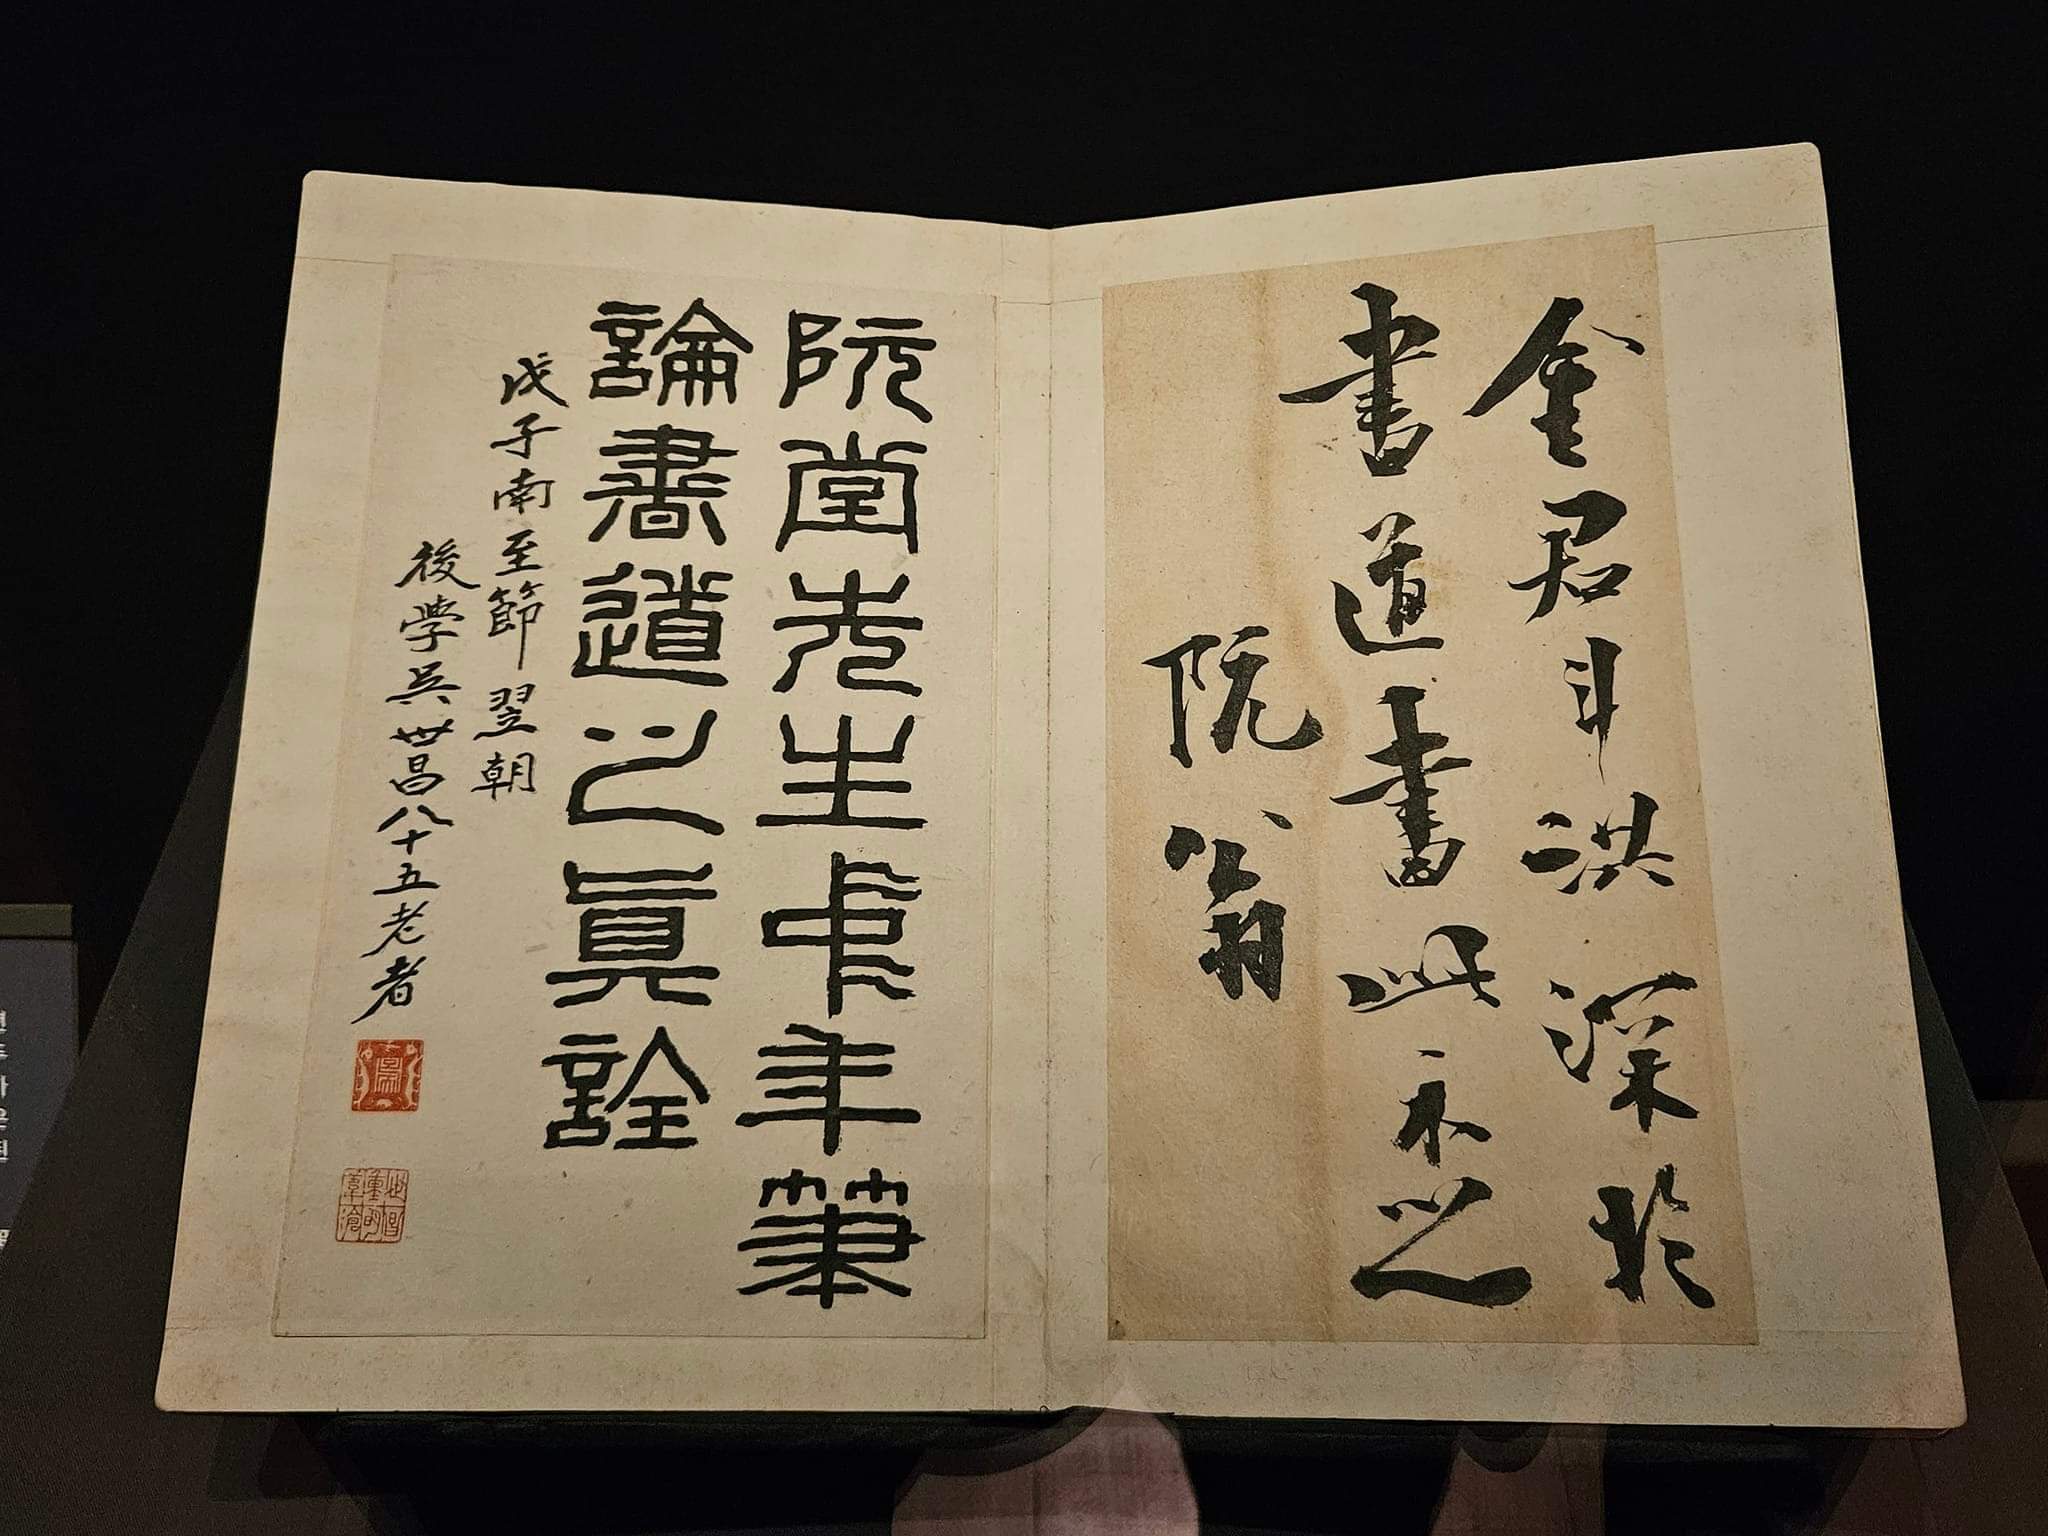 金君斗洪深於
書道書此示之
阮翁
阮堂先生中年筆
論書道之眞詮
戊子南至節翌朝
後學吳世昌八十五老者